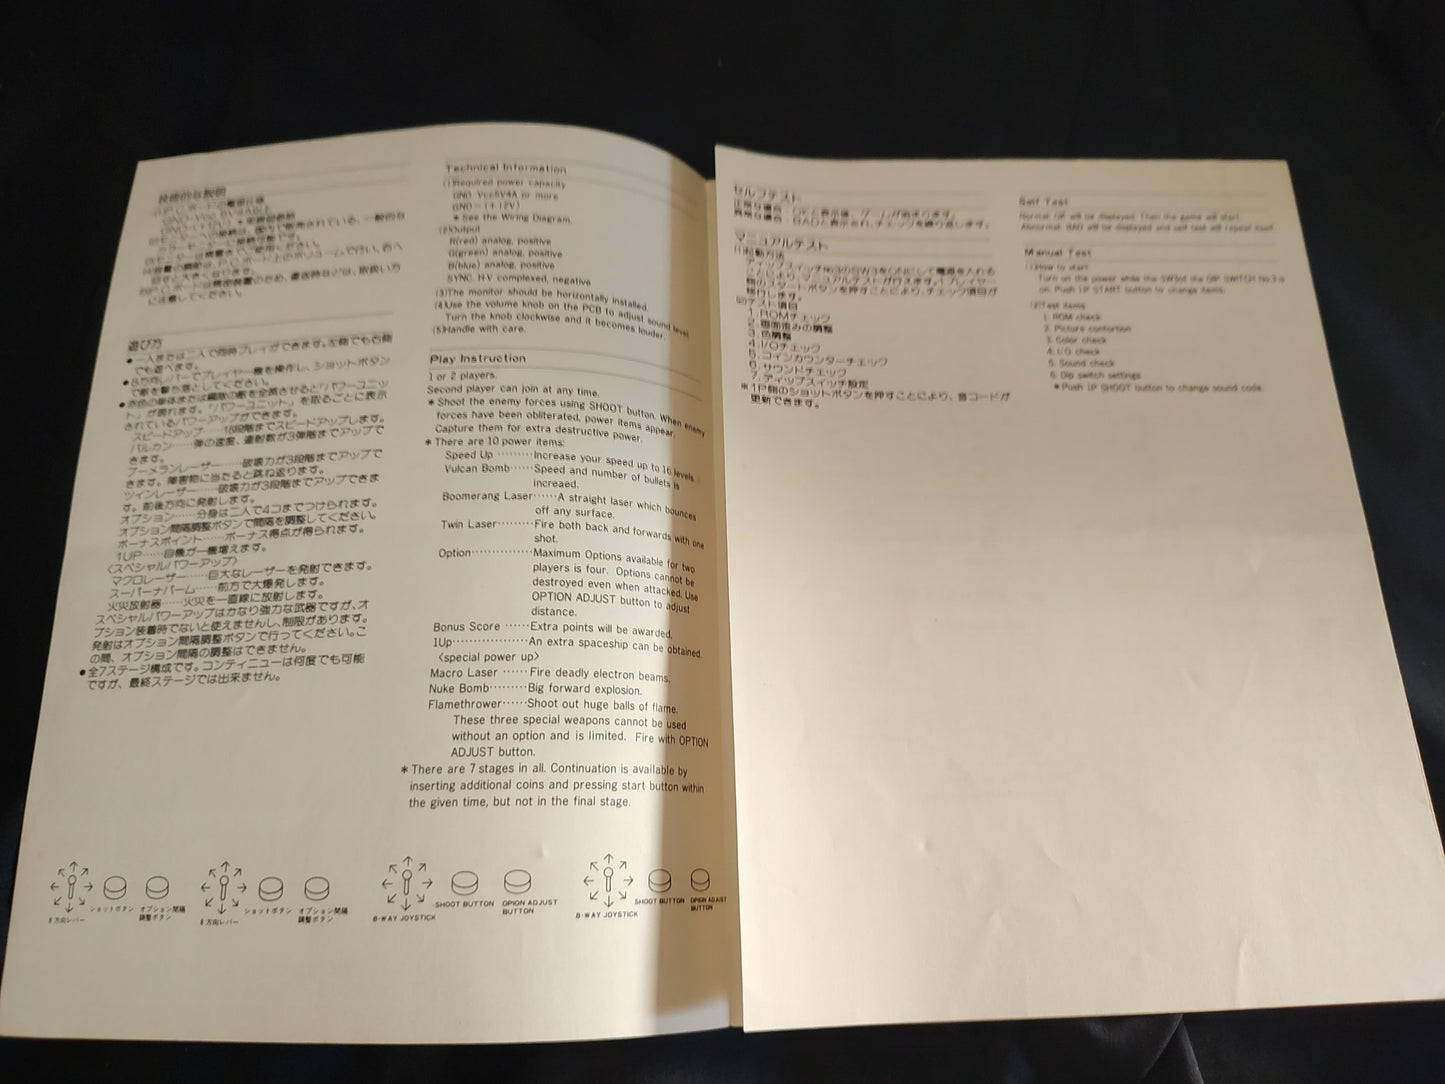 技術的な説明
(1)P.C.ボードの電源仕様
GND-Vcc 5V4A以上
GND-(+12V) *配線図参照
ラモニターに接続可能です。
(3)モニターは横置きでご使用ください。
(4)音量の調節は、P.C.ボード上のボリュームで行い、右へ
回すと大きくなります。
(5)P.C.ボードは精密装置のため、運送時などは、取扱い方
に注意してください。
遊び方
●一人または二人で同時プレイができます。左側でも右側
でも遊べます。
●8方向レバーでプレイヤー機を操作し、ショットボタン
で敵を撃ち落としてください。
●赤色の単体または編隊の敵を全滅させると「パワーユニッ
ト」が現れます。「パワーユニット」を取るごとに表示
されているパワーアップができます。
スピードアップ……16段階までスピードアップします。
バルカン……弾の速度、連射数が3弾階までアップで
きます。
ブーメランレーザー……破壊力が3段階までアップで
きます。障害物に当たると跳ね返ります。
ツインレーザー……破壊力が3段階までアップできま
す。前後方向に発射します。
オプション……分身は二人で4コまでつけられます。
オプション間隔調整ボタンで間隔を調整してください。
ボーナスポイント……ボーナス得点が得られます。
1UP……自機が一機増えます。
〈スペシャルパワーアップ〉
マクロレーザー……巨大なレーザーを発射できます。
スーパーナパーム……前方で大爆発します。
火炎放射器……火炎を一直線に放射します。
スペシャルパワーアップはかなり強力な武器ですが、オ
プション装着時でないと使えませんし、制限があります。
発射はオプション間隔調整ボタンで行ってください。こ
の間、オプション間隔の調整はできません。
●全7ステージ構成です。コンティニューは何度でも可能
ですが、最終ステージでは出来ません。
8方向レバー
ショットボタン
オプション間隔
調整ボタン
8方向レバー
ショットボタン
オプション間隔
調整ボタン
Technical Information
(1)Required power capacity
GND-Vcc5V4A or more
GND-(+12V)
* See the Wiring Diagram.
(2)Output
R(red) analog, positive
G(green) analog, positive
B(blue) analog, positive
SYNC. H-V complexed, negative
(3)The monitor should be horizontally installed.
(4)Use the volume knob on the PCB to adjust sound level.
Turn the knob clockwise and it becomes louder.
(5)Handle with care.
Play Instruction
1 or 2 players.
Second player can join at any time.
* Shoot the enemy forces using SHOOT button. When enemy
forces have been obliterated, power items appear.
Capture them for extra destructive power.
* There are 10 power items:
Speed Up ………Increase your speed up to 16 levels.
Vulcan Bomb……Speed and number of bullets is
increaed.
Boomerang Laser……A straight laser which bounces
off any surface.
Twin Laser………Fire both back and forwards with one
shot.
Option……………Maximum Options available for two
players is four. Options cannot be
destroyed even when attacked. Use
OPTION ADJUST button to adjust
distance.
Bonus Score ……Extra points will be awarded.
1Up………………An extra spaceship can be obtained.
〈special power up〉
Macro Laser ……Fire deadly electron beams.
Nuke Bomb………Big forward explosion.
Flamethrower……Shoot out huge balls of flame.
These three special weapons cannot be used
without an option and is limited. Fire with OPTION
ADJUST button.
* There are 7 stages in all. Continuation is available by
inserting additional coins and pressing start button within
the given time, but not in the final stage.
8-WAY JOYSTICK
SHOOT BUTTON
OPION ADJUST
BUTTON
8-WAY JOYSTICK
SHOOT BUTTON
OPION ADJUST
BUTTON
セルフテスト
正常な場合：OKと表示後、ゲームが始まります。
異常な場合：BADと表示され、チェックを繰り返します。
マニュアルテスト
(1)起動方法
ディップスイッチNo.3のSW3をONにして電源を入れる
ことにより、マニュアルテストが行えます。1プレイヤー
側のスタートボタンを押すことにより、チェック項目が
移行します。
(2)テスト項目
1. ROMチェック
2. 画面歪みの調整
3. 色調整
4. I/Oチェック
5. コインカウンターチェック
6. サウンドチェック
7. ディップスイッチ設定
*1P側のショットボタンを押すことにより、音コードが
更新できます。
Self Test
Normal: OK will be displayed. Then the game will start.
Abnormal: BAD will be displayed and self test will repeat itself.
Manual Test
(1)How to start
Turn on the power while the SW3of the DIP SWITCH No.3 is
on. Push 1P START button to change items.
(2)Test items
1. ROM check
2. Picture contortion
3. Color check
4. I/O check
5. Sound check
6. Dip switch settings
* Push 1P SHOOT button to change sound code.